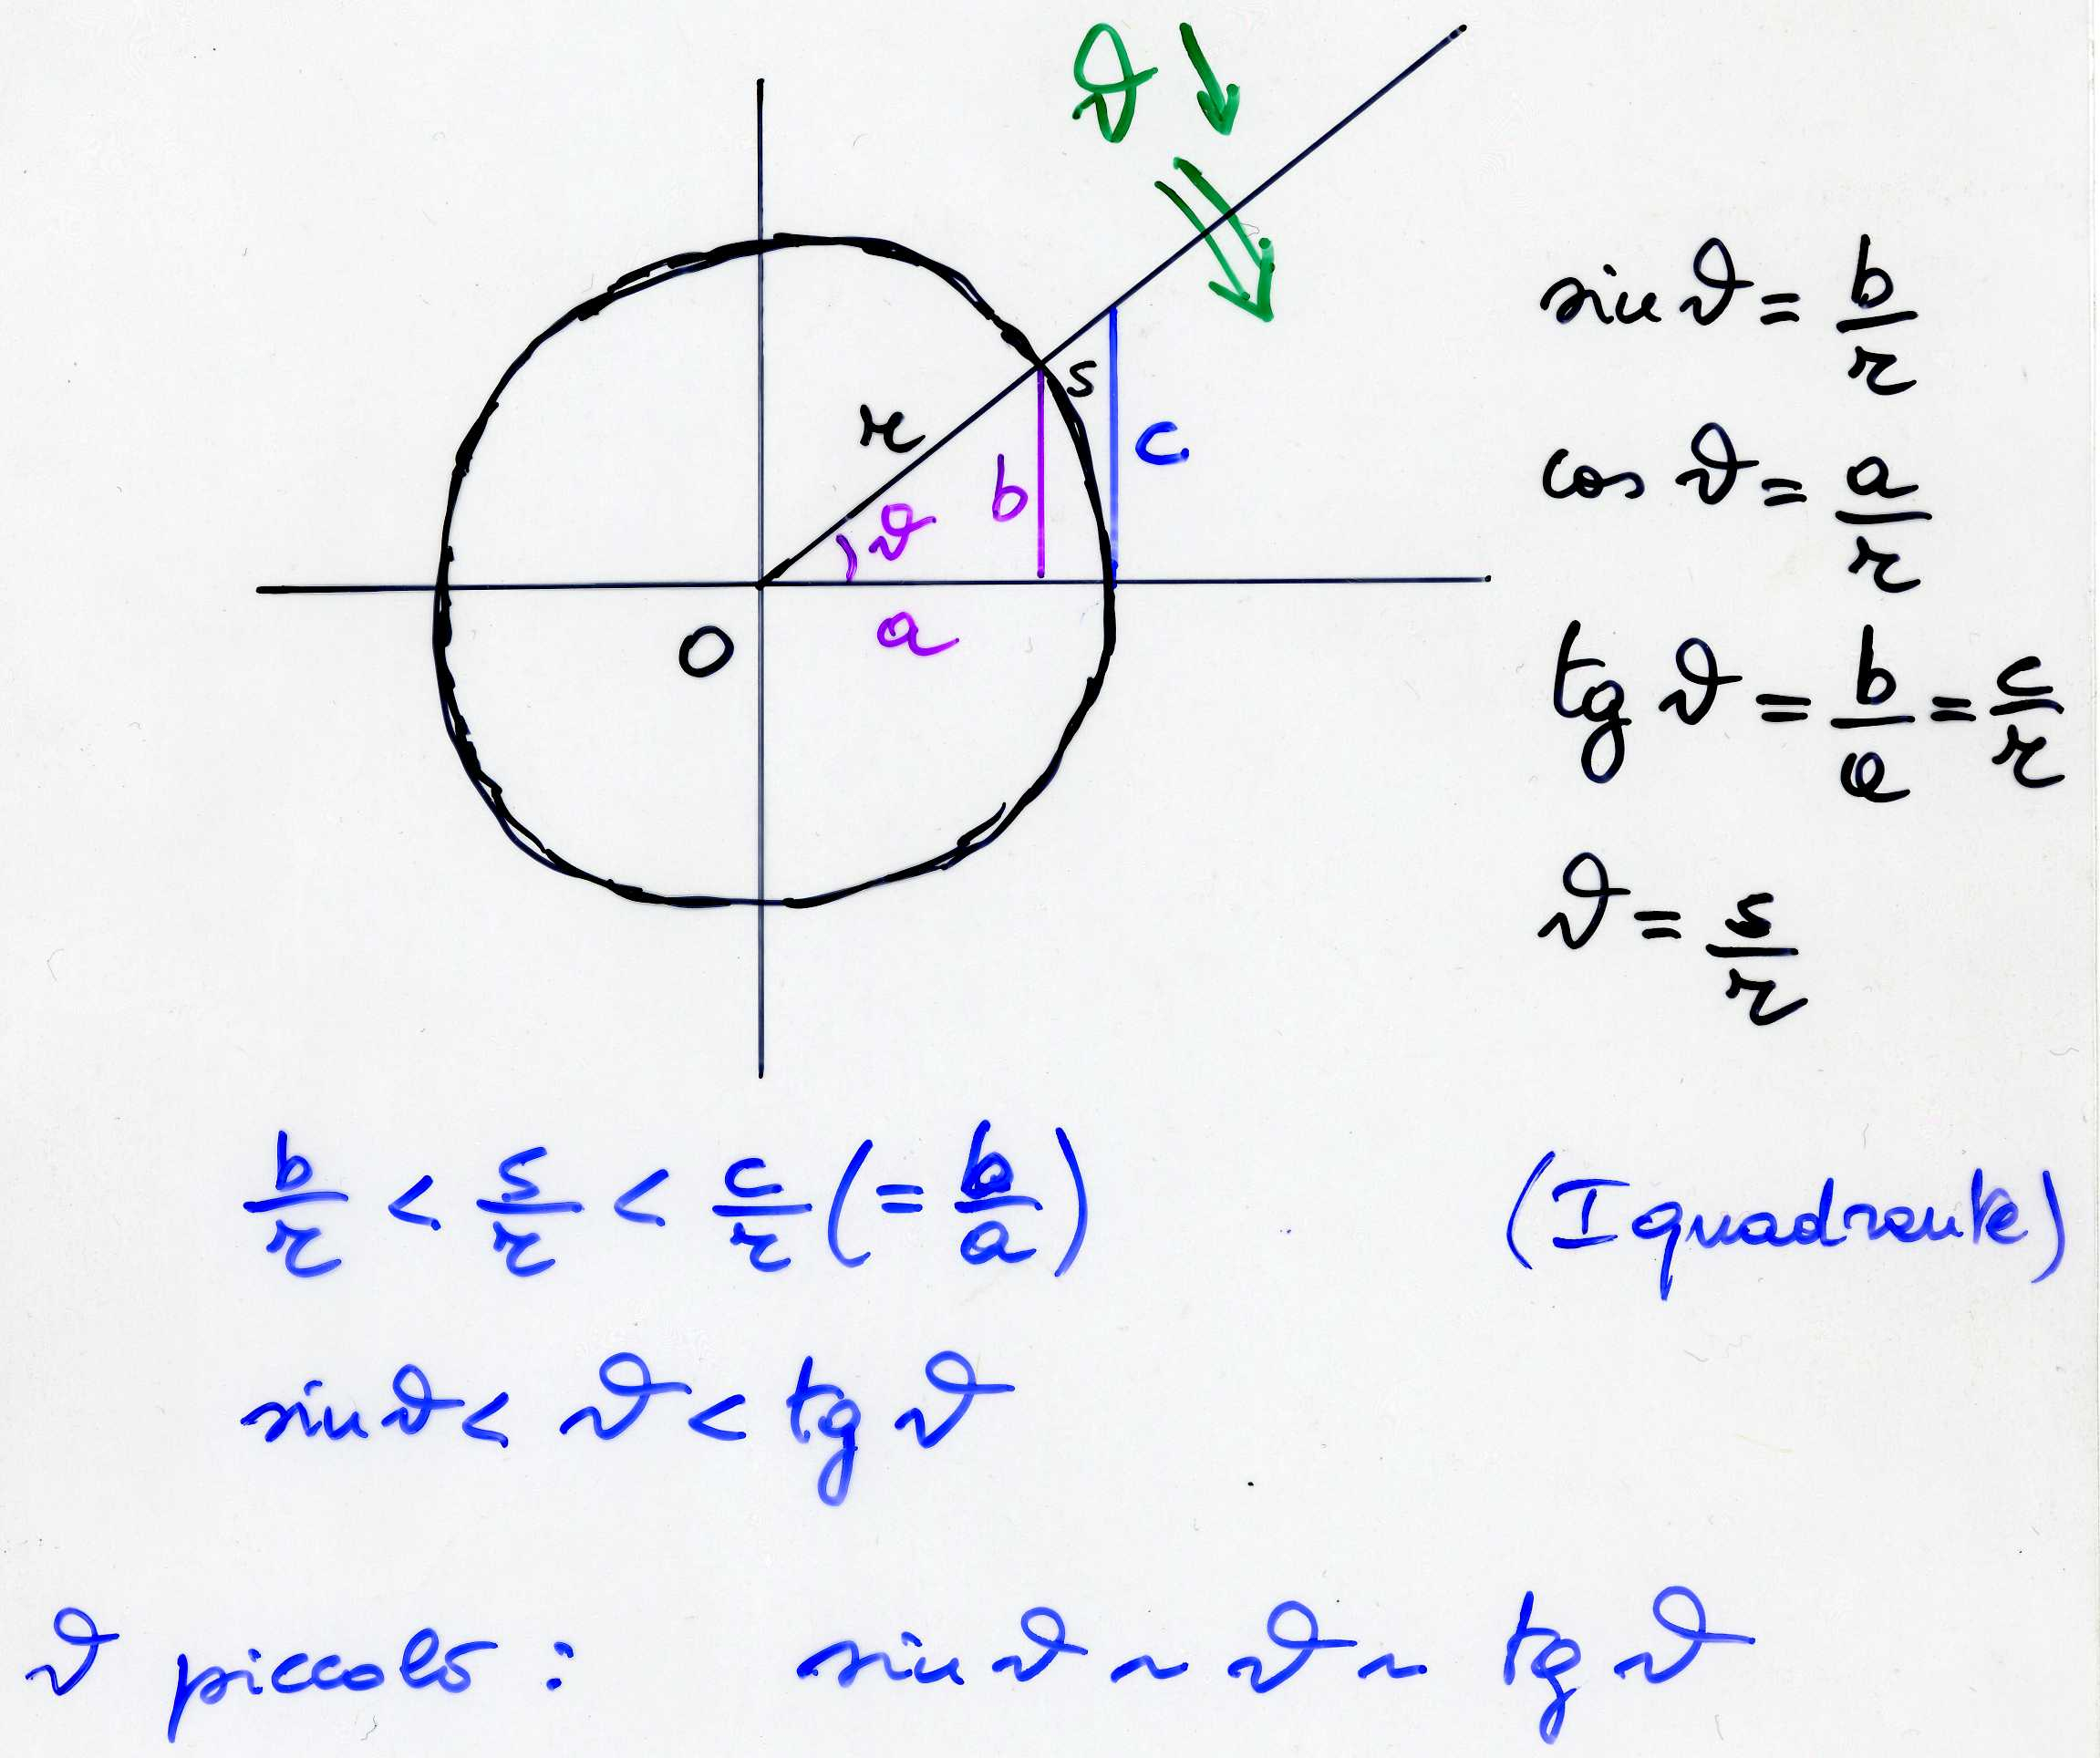 ϑ ↓
s
r
c
b
ϑ
a
O
sin ϑ = b/r
cos ϑ = a/r
tg ϑ = b/a = c/r
ϑ = s/r
b/r < s/r < c/r (= b/a) (I quadrante)
sin ϑ < ϑ < tg ϑ
ϑ piccolo : sin ϑ ~ ϑ ~ tg ϑ